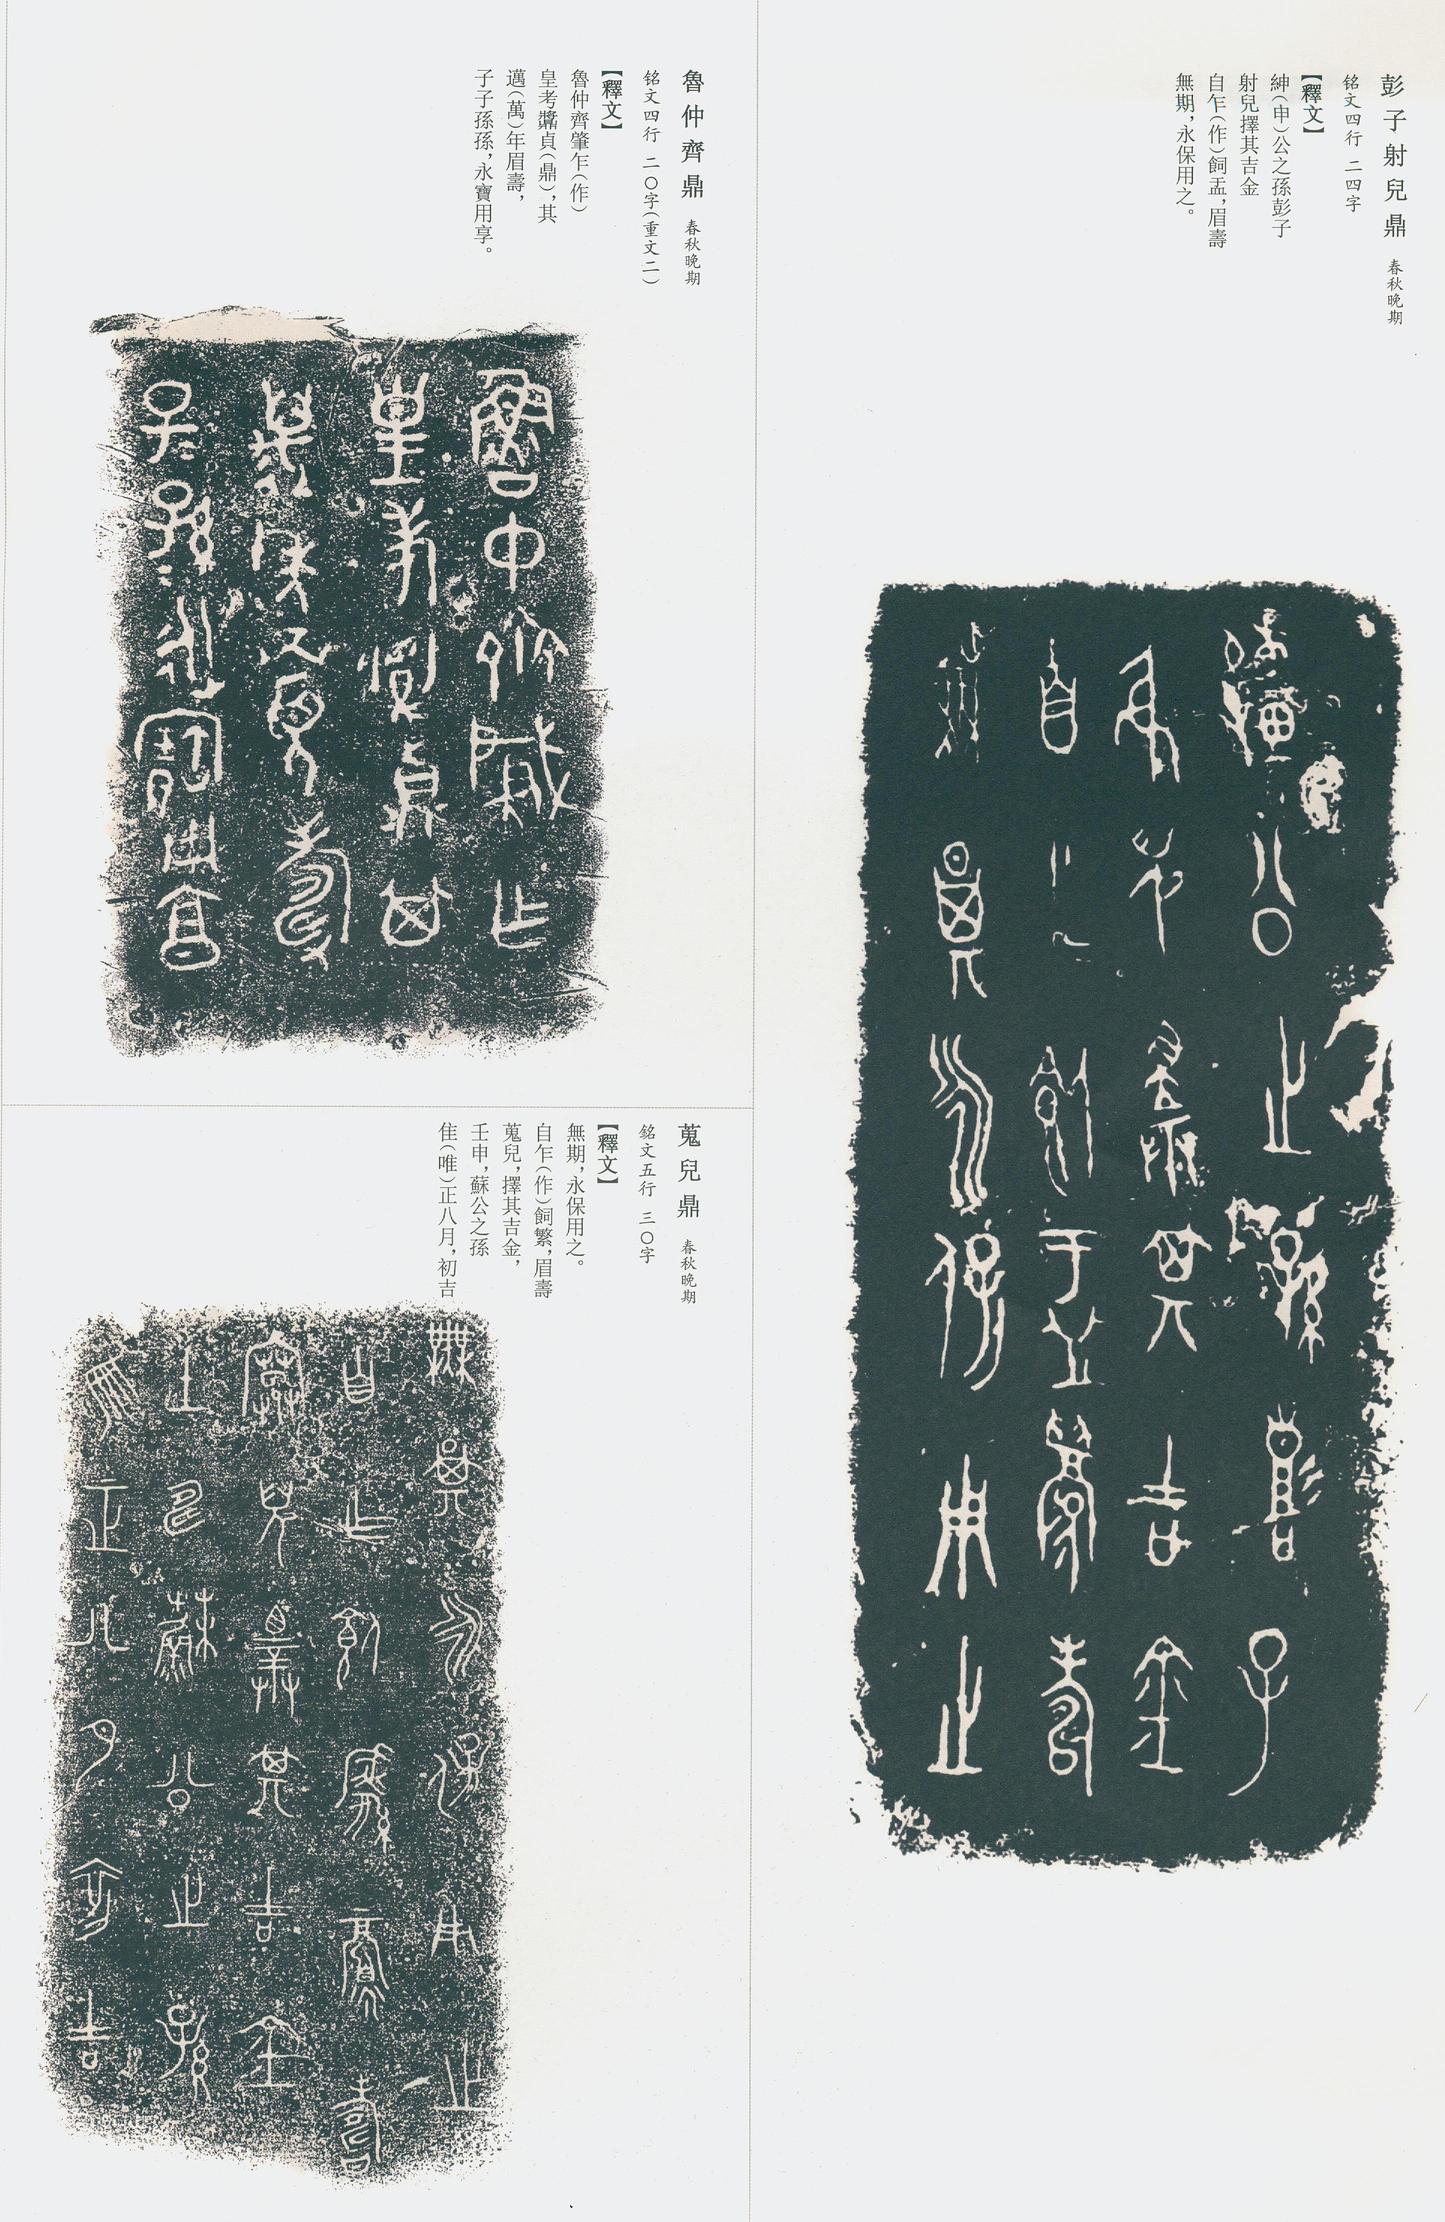 彭子射兒鼎 春秋晚期
铭文四行 二四字
【釋文】
紳(申)公之孫彭子
射兒擇其吉金
自乍(作)飼盂,眉壽
無期,永保用之。
魯仲齊鼎 春秋晚期
铭文四行 二〇字(重文二)
【釋文】
魯仲齊肇乍(作)
皇考鷰貞(鼎),其
邁(萬)年眉壽,
子子孫孫,永寶用享。
蒐兒鼎 春秋晚期
銘文五行 三〇字
【釋文】
無期,永保用之。
自乍(作)飼繁,眉壽
蒐兒,擇其吉金,
壬申,蘇公之孫
隹(唯)正八月,初吉